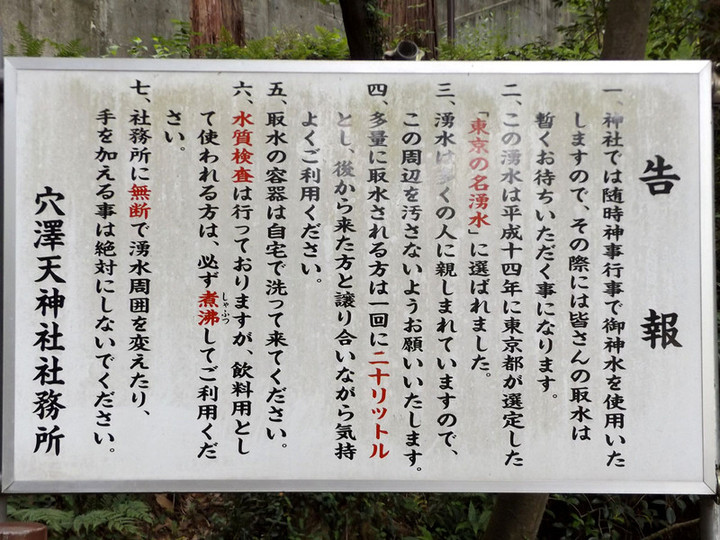 告報
一、神社では随時神事行事で御神水を使用いた
しますので、その際には皆さんの取水は
暫くお待ちいただく事になります。
二、この湧水は平成十四年に東京都が選定した
「東京の名湧水」に選ばれました。
三、湧水は多くの人に親しまれていますので、
この周辺を汚さないようお願いいたします。
四、多量に取水される方は一回に二十リットル
とし、後から来た方と譲り合いながら気持
よくご利用ください。
五、取水の容器は自宅で洗って来てください。
六、水質検査は行っておりますが、飲料用とし
て使われる方は、必ず煮沸してご利用くだ
しゃふつ
さい。
七、社務所に無断で湧水周囲を変えたり、
手を加える事は絶対にしないでください。
穴澤天神社社務所